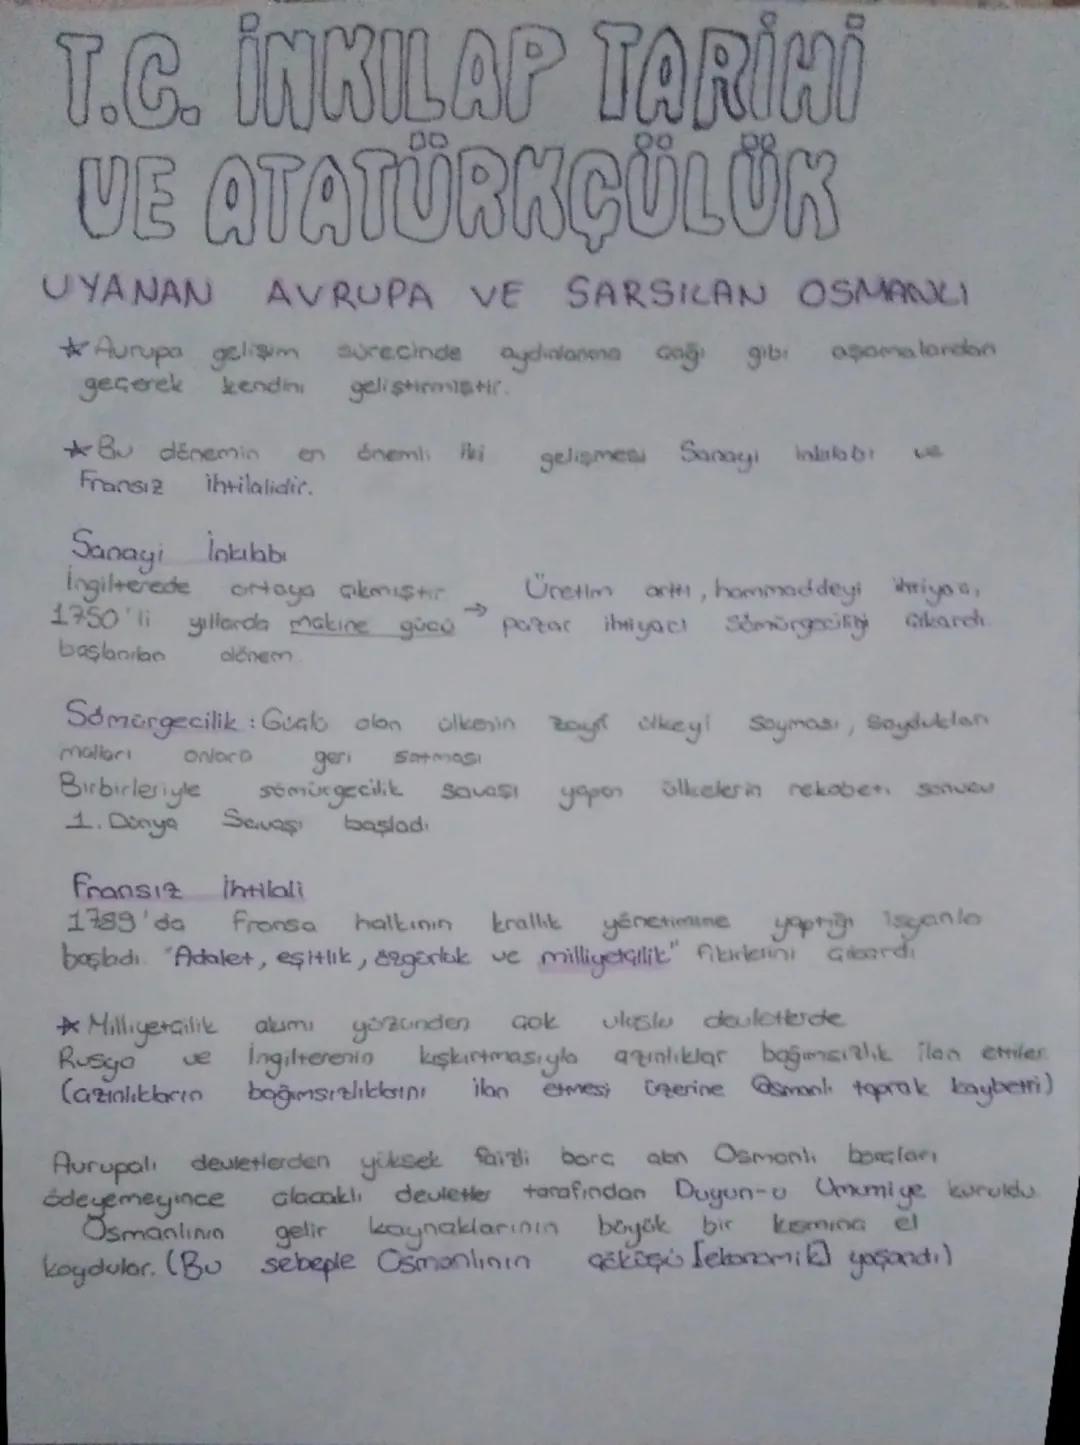 T.C. İNKILAP TARİHİ
VE ATATÜRKÇÜLÜK
UYANAN AVRUPA VE SARSILAN OSMANLI
* Avrupa gelişim sürecinde aydınlanma çağı gibi aşamalardan
geçerek kendini geliştirmiştir.
* Bu dönemin en önemli iki gelişmesi Sanayi inkılabı ve
Fransız ihtilalidir.
Sanayi İnkılabı
İngilterede ortaya çıkmıştır Üretim arttı, hammaddeyi ihtiyacı,
1750'li yıllarda makine gücü → pazar ihtiyacı sömürgeciliği çıkardı.
başlanılan dönem
Sömürgecilik : Güçlü olan ülkenin zayıf ülkeyi soyması, soydukları
malları onlara geri satması
Birbirleriyle sömürgecilik savaşı yapan ülkelerin rekabeti sonucu
1. Dünya Savaşı başladı
Fransız İhtilali
1789'da Fransa halkının krallık yönetimine yaptığı isyanla
başladı. "Adalet, eşitlik, özgürlük ve milliyetçilik" fikirlerini çıkardı
* Milliyetçilik akımı yüzünden çok uluslu devletlerde
Rusya ve İngilterenin kışkırtmasıyla azınlıklar bağımsızlık ilan ettiler.
(azınlıkların bağımsızlıklarını ilan etmesi üzerine Osmanlı toprak kaybetti)
Avrupalı devletlerden yüksek faizli borç alan Osmanlı borçları
ödeyemeyince alacaklı devletler tarafından Duyun-u Umumiye kuruldu.
Osmanlının gelir kaynaklarının büyük bir kısmına el
koydular. (Bu sebeple Osmanlının çöküşü [ekonomik] yaşandı)